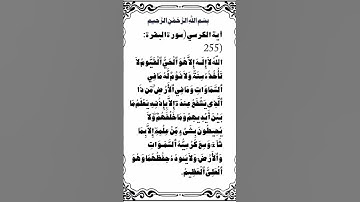 بسم الله الرحمن الرحيم
آية الكرسي (سورة البقرة:
255)
اللَّهُ لَا إِلَٰهَ إِلَّا هُوَ الْحَيُّ الْقَيُّومُ لَا
تَأْخُذُهُ سِنَةٌ وَلَا نَوْمٌ لَّهُ مَا فِي
السَّمَاوَاتِ وَمَا فِي الْأَرْضِ مَن ذَا
الَّذِي يَشْفَعُ عِندَهُ إِلَّا بِإِذْنِهِ يَعْلَمُ مَا
بَيْنَ أَيْدِيهِمْ وَمَا خَلْفَهُمْ وَلَا
يُحِيطُونَ بِشَيْءٍ مِّنْ عِلْمِهِ إِلَّا بِمَا
شَاءَ وَسِعَ كُرْسِيُّهُ السَّمَاوَاتِ
وَالْأَرْضَ وَلَا يَئُودُهُ حِفْظُهُمَا وَهُوَ
الْعَلِيُّ الْعَظِيمُ.